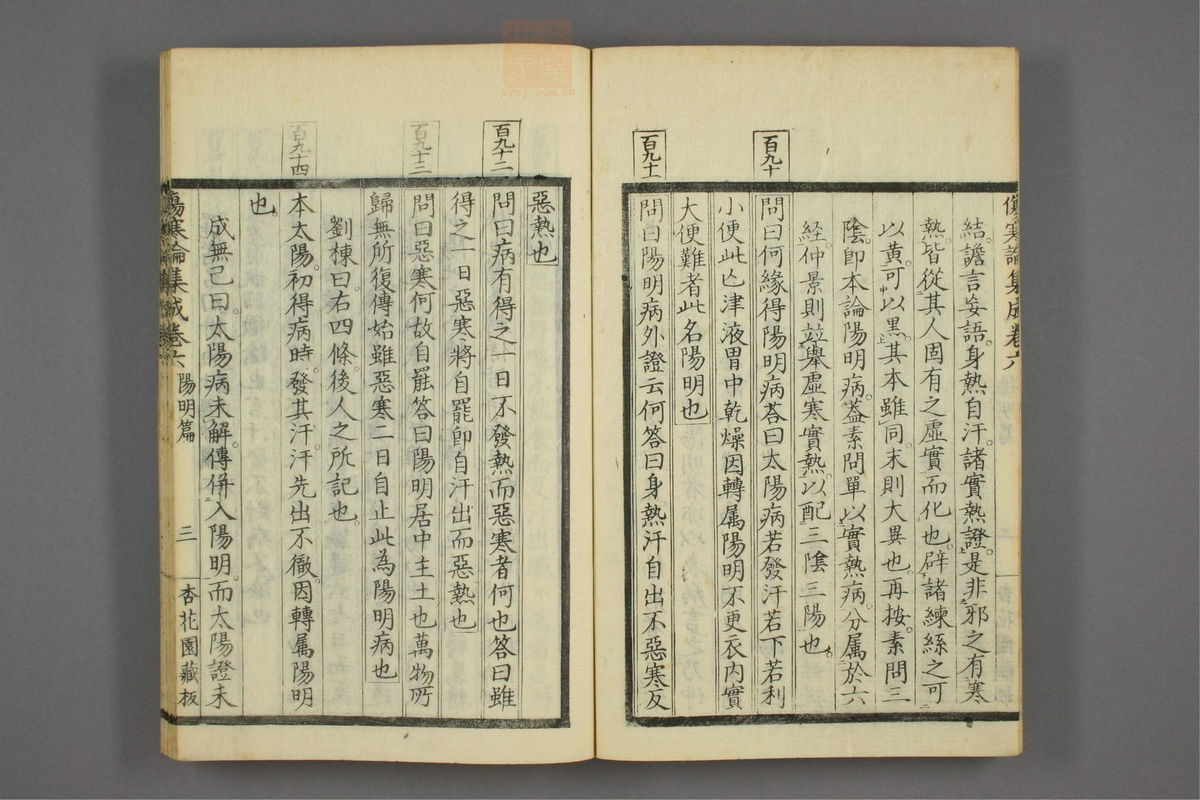 傷寒論集成卷六
結。譫言妄語。身熱自汗。諸實熱證。是非邪之有寒
熱。皆從其人固有之虛實而化也。辟諸練絲之可
以黃。可以黑。其本雖同。末則大異也。再按素問三
陰。即本論陽明病。蓋素問單以實熱病。分属於六
經。仲景則竝舉虛寒實熱。以配三陰三陽也。
百九十
問曰何緣得陽明病荅曰太陽病若發汗若下若利
小便此亡津液胃中乾燥因轉属陽明不更衣内實
大便難者此名陽明也
百九十一
問曰陽明病外證云何答曰身熱汗自出不惡寒反
惡熱也
百九十二
問曰病有得之一日不發熱而惡寒者何也答曰雖
得之一日惡寒將自罷卽自汗出而惡熱也
百九十三
問曰惡寒何故自罷答曰陽明居中主土也萬物所
歸無所復傳始雖惡寒二日自止此為陽明病也
劉棟曰。右四條。後人之所記也。
百九十四
本太陽。初得病時。發其汗。汗先出不徹。因轉属陽明
也。
成無己曰。太陽病未解。傳併入陽明。而太陽證未
傷寒論集成卷六 陽明篇 三 杏花園藏板